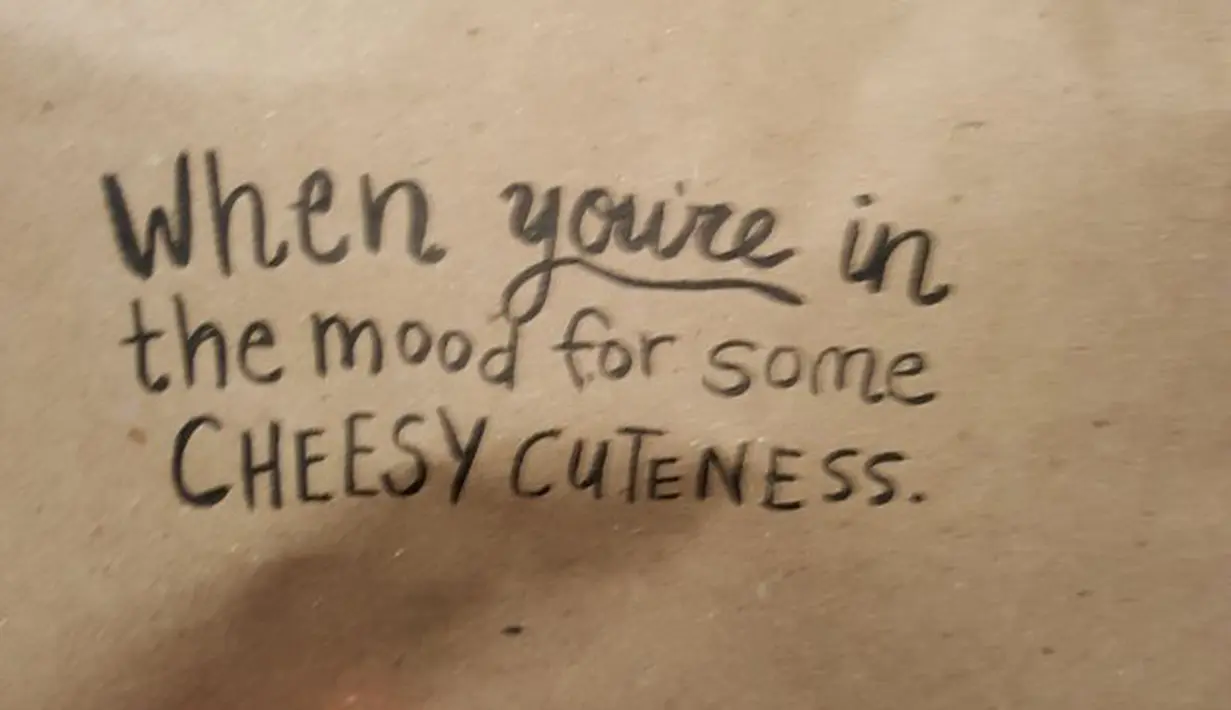 When you're in
the mood for some
CHEESY CUTENESS.